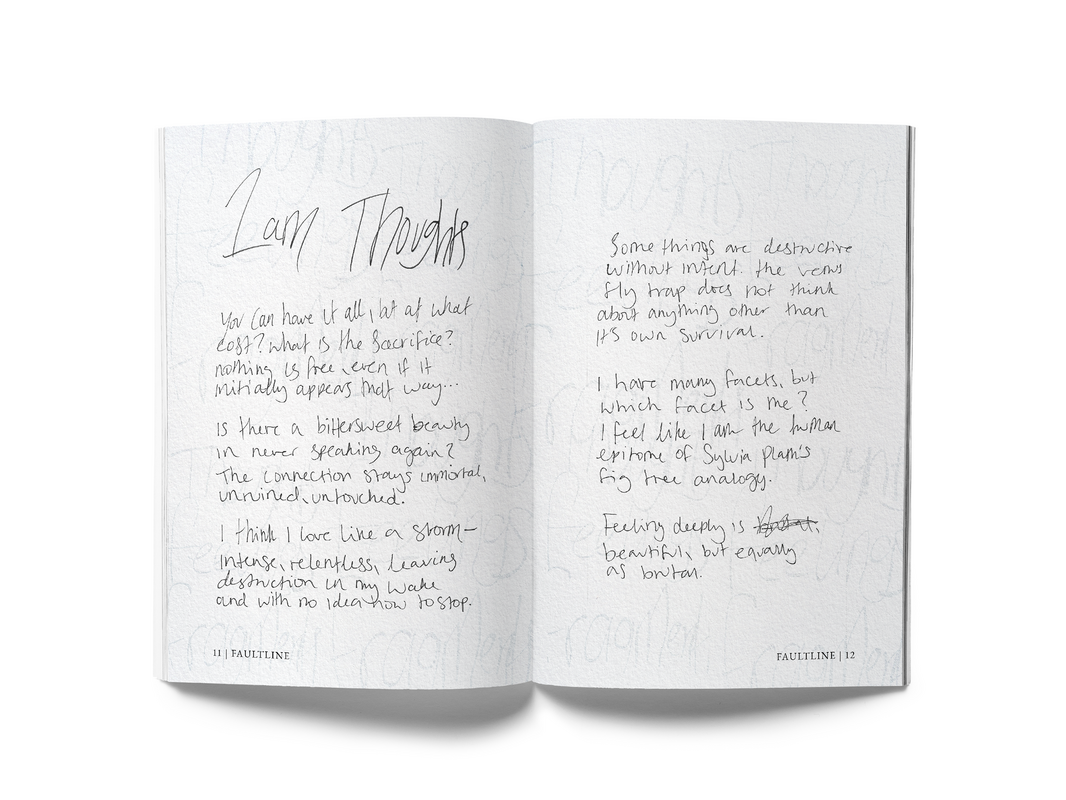 1am Thoughts
you can have it all, bt at what
cost? what is the sacrifice?
nothing is free, even if it
initially appears that way...
is there a bittersweet beauty
in never speaking again?
The connection stays immortal,
unruined, untouched.
I think I love like a storm-
intense, relentless, leaving
destruction in my wake
and with no idea how to stop.
11 | FAULTLINE
Some things are destructive
without intent. the venus
fly trap does not think
about anything other than
it's own survival.
I have many facets, but
which facet is me?
I feel like I am the human
epitome of Sylvia Plath's
fig tree analogy.
Feeling deeply is
beautiful, but equally
as brutal.
FAULTLINE | 12